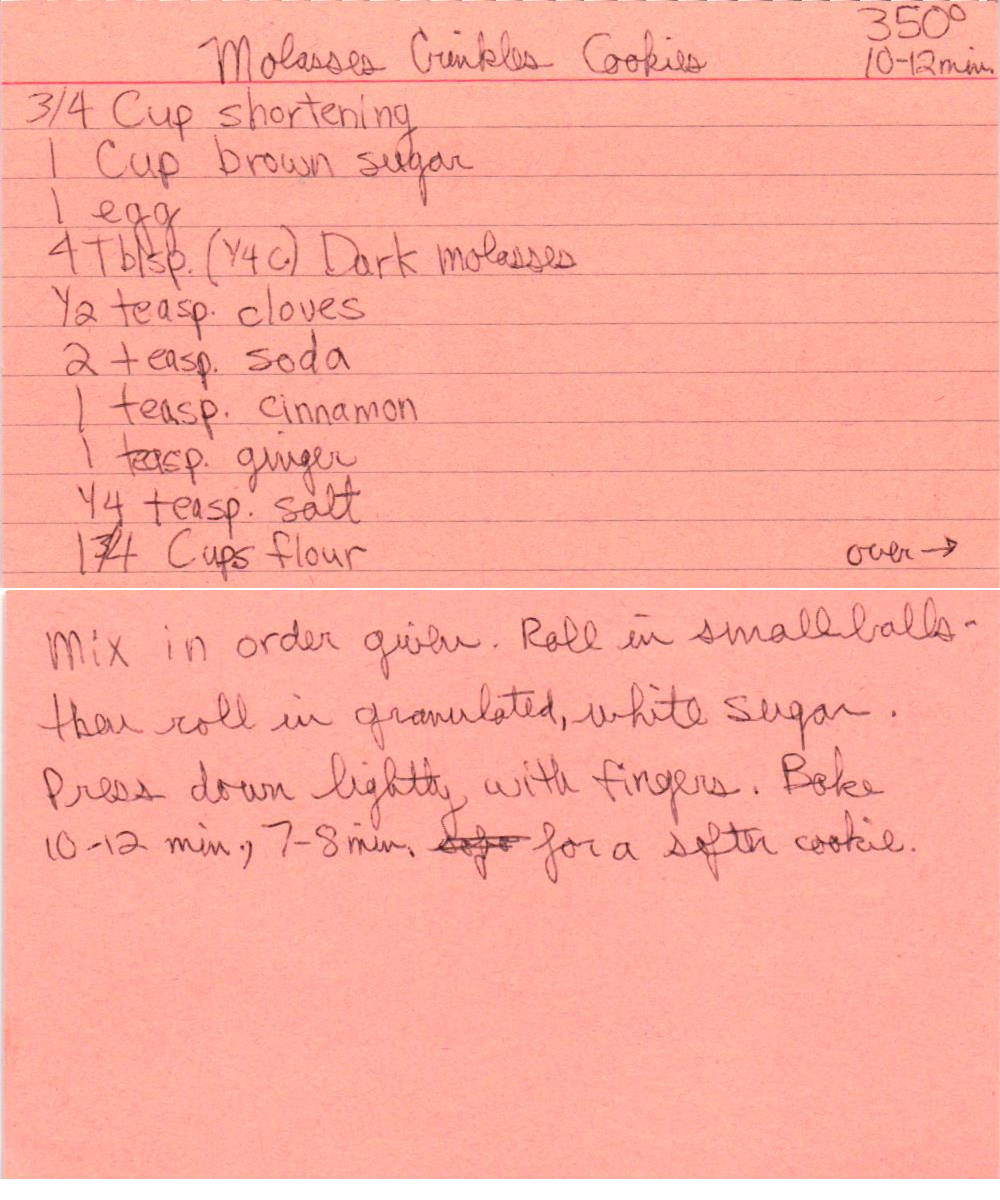 350°
Molasses Crinkles Cookies 10-12 min.
3/4 Cup shortening
1 Cup brown sugar
1 egg
4 Tblsp. (1/4 C.) Dark molasses
1/2 teasp. cloves
2 teasp. soda
1 teasp. cinnamon
1 teasp. ginger
1/4 teasp. salt
1 3/4 Cups flour over →
Mix in order given. Roll in small balls-
then roll in granulated, white sugar.
Press down lightly with fingers. Bake
10-12 min., 7-8 min. for a softer cookie.